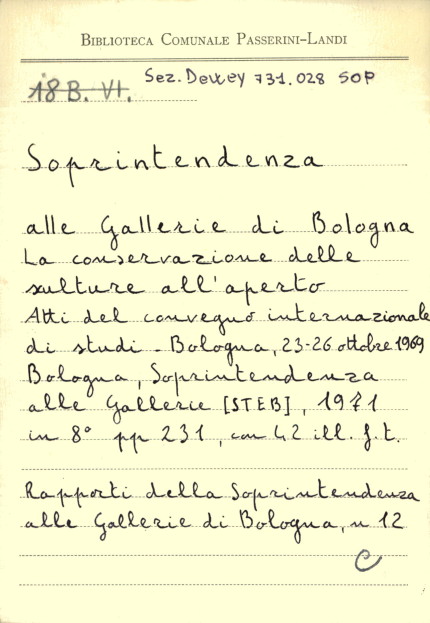 BIBLIOTECA COMUNALE PASSERINI-LANDI
Sez. Dewey 731.028 SOP
18 B. VI.
Soprintendenza
alle Gallerie di Bologna
La conservazione delle
sulture all'aperto
Atti del convegno internazionale
di studi - Bologna, 23-26 ottobre 1969
Bologna, Soprintendenza
alle Gallerie [STEB], 1971
in 8° pp 231, con 42 ill. f. t.
Rapporti della Soprintendenza
alle Gallerie di Bologna, n 12
C